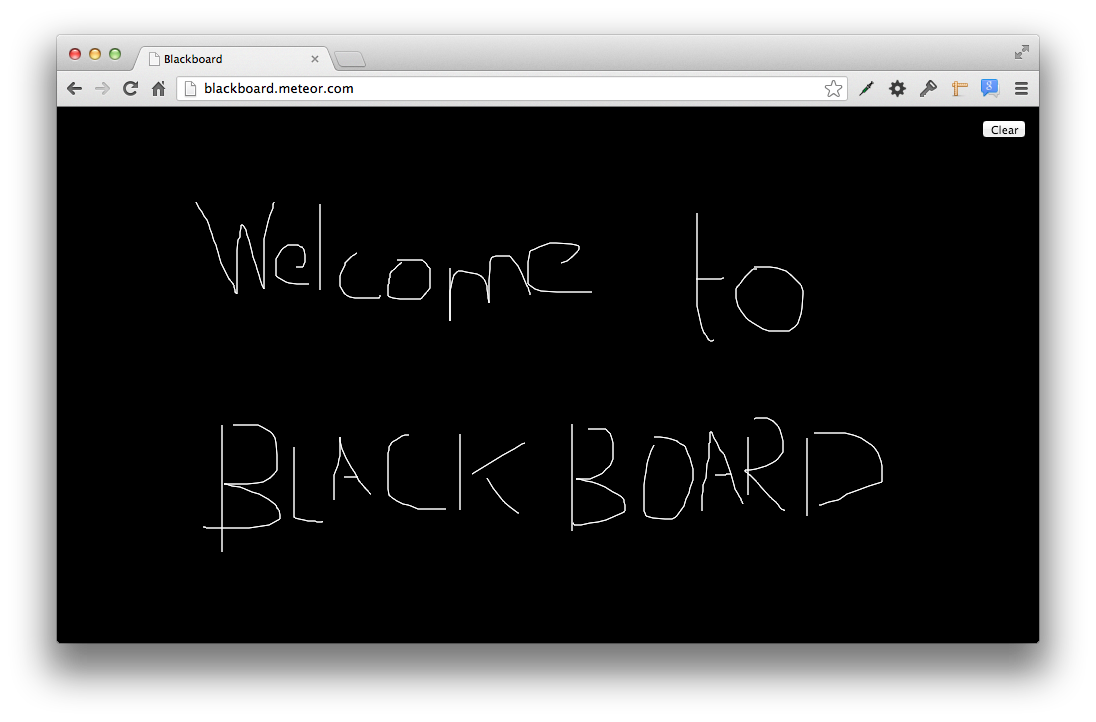 Blackboard
blackboard.meteor.com
Clear
Welcome to
BLACKBOARD